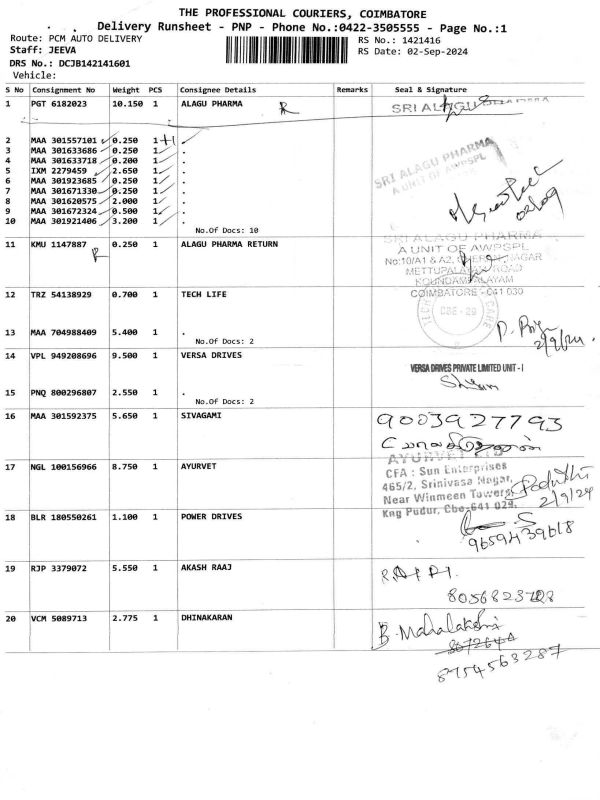 THE PROFESSIONAL COURIERS, COIMBATORE
Delivery Runsheet - PNP - Phone No.:0422-3505555 - Page No.:1
Route: PCM AUTO DELIVERY
RS No.: 1421416
Staff: JEEVA
RS Date: 02-Sep-2024
DRS No.: DCJB142141601
Vehicle:
S No Consignment No Weight PCS Consignee Details Remarks Seal & Signature
1 PGT 6182023 10.150 1 ALAGU PHARMA R SRI ALAGU PHARMA
2 MAA 301557101 0.250 1 .
3 MAA 301633686 0.250 1 .
4 MAA 301633718 0.200 1 .
5 IXM 2279459 2.650 1 .
6 MAA 301923685 0.250 1 .
7 MAA 301671330 0.250 1 .
8 MAA 301620575 2.000 1 .
9 MAA 301672324 0.500 1 .
10 MAA 301921406 3.200 1 .
SRI ALAGU PHARMA
A UNIT OF AWPSPL
No.Of Docs: 10
11 KMU 1147887 0.250 1 ALAGU PHARMA RETURN
R
SRI ALAGU PHARMA
A UNIT OF AWPSPL
No:10/A1 & A2, SHERAN NAGAR
METTUPALAYAM ROAD
KOUNDAMPALAYAM
COIMBATORE - 641 030
12 TRZ 54138929 0.700 1 TECH LIFE
TECH CARE
CBE - 29
2/9/24
13 MAA 704988409 5.400 1 .
No.Of Docs: 2
14 VPL 949208696 9.500 1 VERSA DRIVES
VERSA DRIVES PRIVATE LIMITED UNIT - I
15 PNQ 800296807 2.550 1 .
No.Of Docs: 2
16 MAA 301592375 5.650 1 SIVAGAMI
9003927793
17 NGL 100156966 8.750 1 AYURVET
AYURVET LTD
CFA : Sun Enterprises
465/2, Srinivasa Nagar,
Near Winmeen Towers,
Kng Pudur, Cbe-641 029.
2/9/24
18 BLR 180550261 1.100 1 POWER DRIVES
19 RJP 3379072 5.550 1 AKASH RAAJ
20 VCM 5089713 2.775 1 DHINAKARAN
B. Mahalakshmi
8754563287